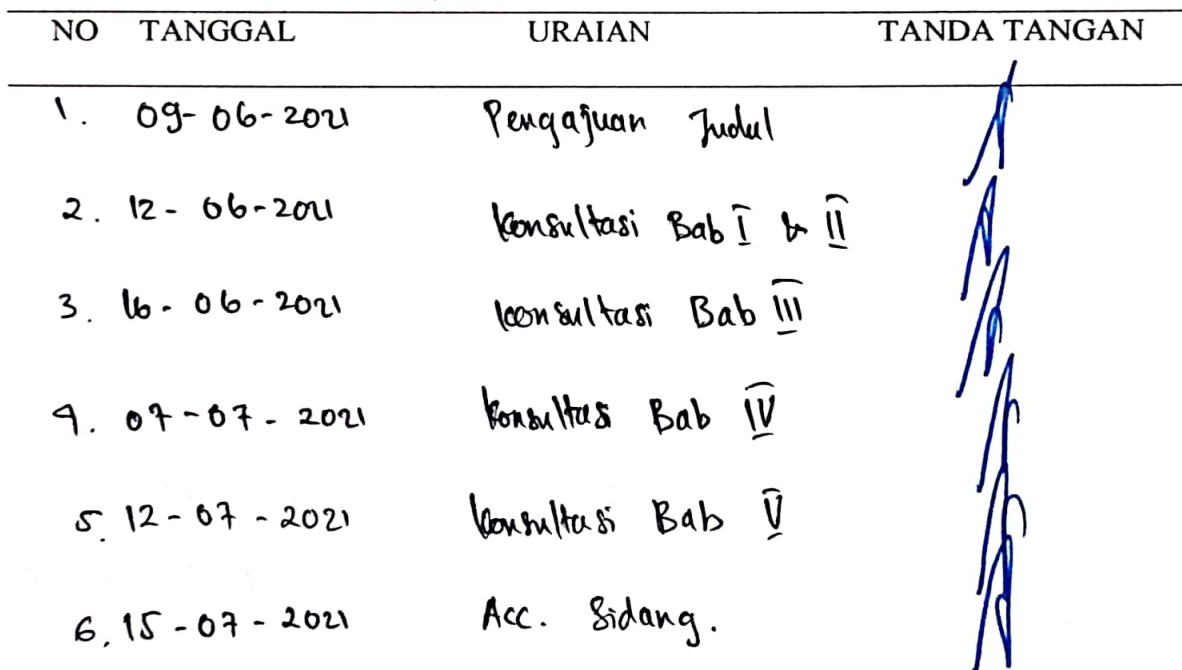 NO TANGGAL URAIAN TANDA TANGAN
1. 09-06-2021 Pengajuan Judul
2. 12-06-2021 Konsultasi Bab I & II
3. 16-06-2021 Konsultasi Bab III
4. 07-07-2021 Konsultasi Bab IV
5. 12-07-2021 Konsultasi Bab V
6. 15-07-2021 Acc. Sidang.